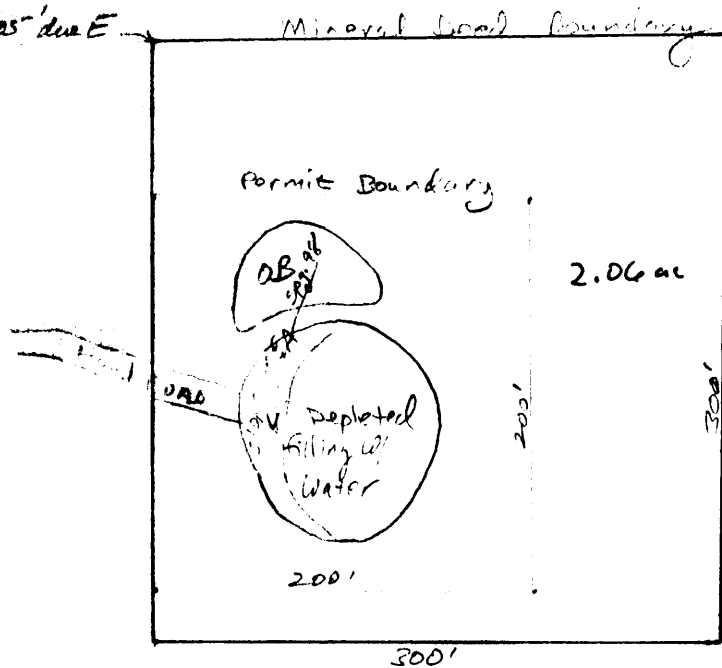 due E
Mineral Boundary
Permit Boundary
OB
2.06 ac
Depleted
filling w/
Water
200'
300'
200'
300'